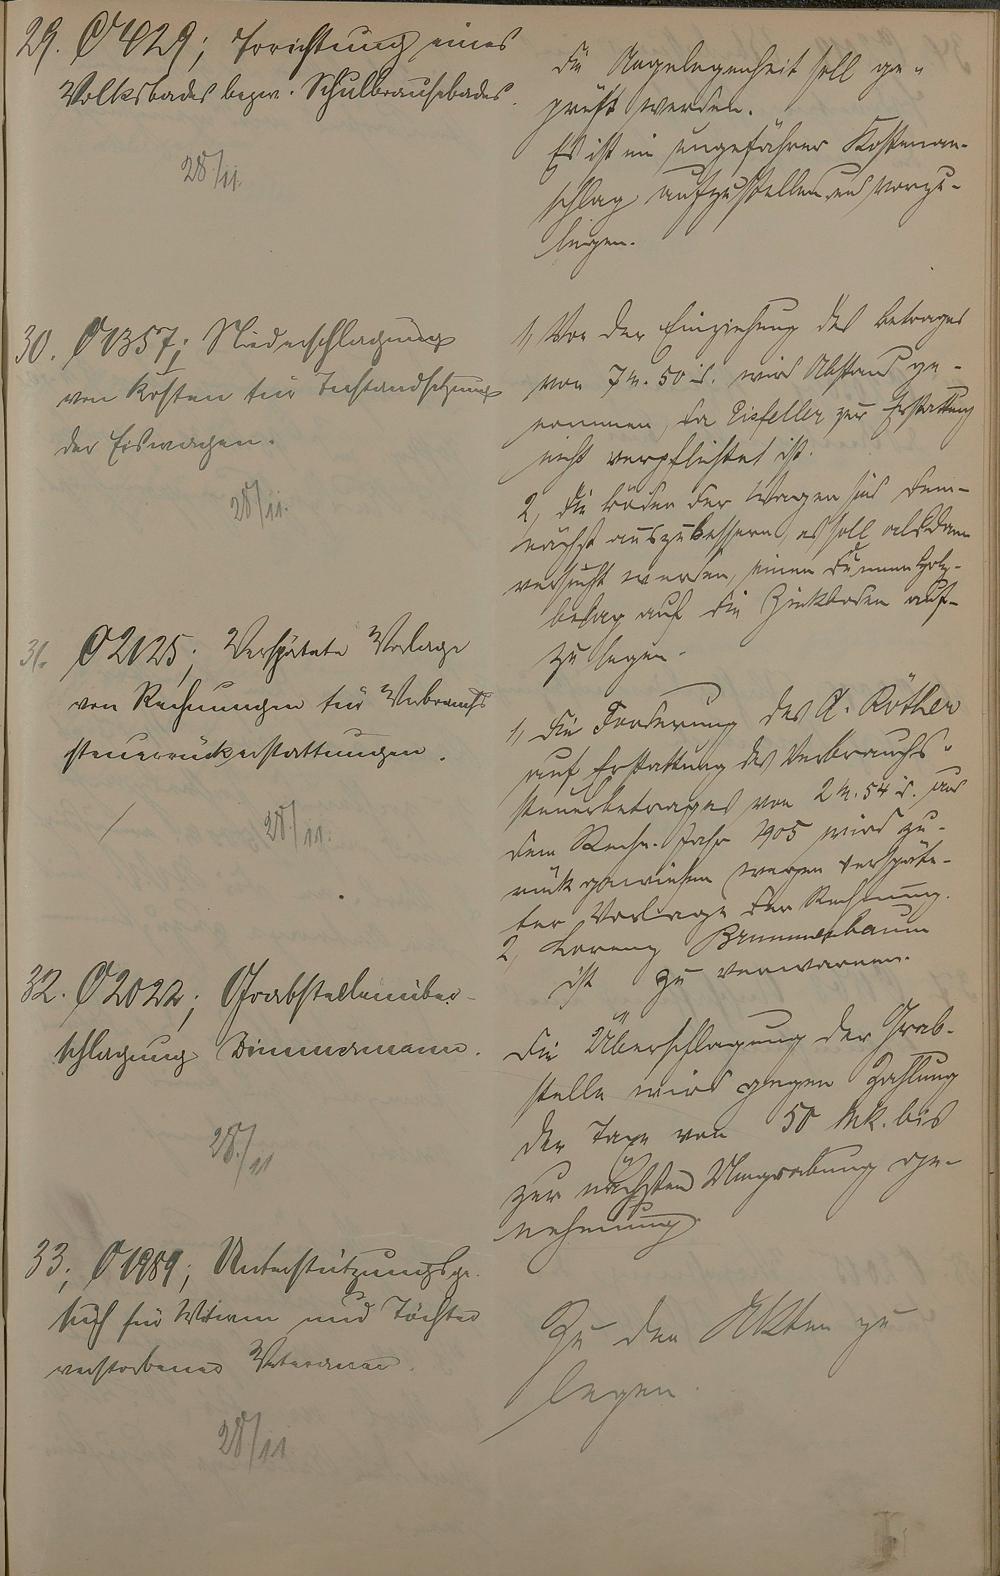 29. O 429; Errichtung eines
Volksbades bezw. Schulbrausebades.
28/11.
Die Angelegenheit soll ge-
prüft werden.
Es ist ein ungefährer Kostenan-
schlag aufzustellen und vorzu-
legen.
30. O 1357; Niederschlagung
von Kosten für Instandsetzung
der Eiswagen.
28/11.
1, Von der Einziehung des Betrages
von 7 M. 50 d. wird Abstand ge-
nommen, da Eisfeller zur Erstattung
nicht verpflichtet ist.
2, Die Böden der Wagen sind dem-
nächst auszubessern, es soll alsdann
versucht werden, einen dünnen Holz-
belag auf die Zinkboden auf-
zulegen.
31. O 2125; Verspätete Vorlage
von Rechnungen für Verbrauchs
steuerrückerstattungen.
28/11.
1, Die Forderung des A. Röther
auf Erstattung des Verbrauchs-
steuerbetrages von 2 M. 54 d. aus
dem Rechn. Jahr 1905 wird zu-
rückgewiesen wegen verspäte-
ter Vorlage der Rechnung.
2, Lorenz
ist zu verwarnen.
32. O 2022; Grabstellenüber-
schlagung Dimmermann.
28/11
Die Überschlagung der Grab-
stelle wird gegen Zahlung
der Taxe von 50 Mk. bis
zur nächsten Umgrabung ge-
nehmigt.
33; O 1989; Unterstützungsge-
such für Witwen und Töchter
verstorbener Veteranen.
28/11
Zu den Akten zu
legen.